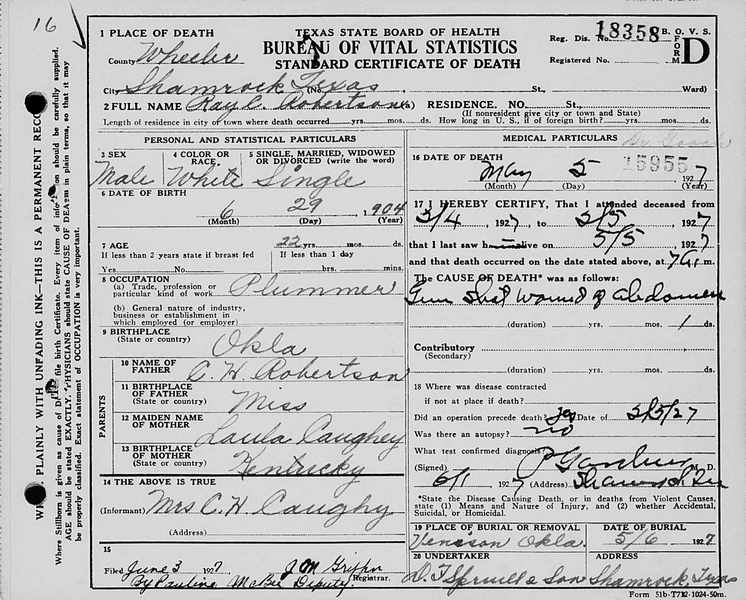 16
1 PLACE OF DEATH TEXAS STATE BOARD OF HEALTH Reg. Dis. No. 18358 B. O. V. S.
County Wheeler BUREAU OF VITAL STATISTICS FORM D
STANDARD CERTIFICATE OF DEATH Registered No.
City Shamrock Texas (No. St., Ward)
2 FULL NAME Ray C. Robertson RESIDENCE. NO. St.,
(If nonresident give city or town and State)
Length of residence in city or town where death occurred yrs. mos. ds. How long in U. S., if of foreign birth? yrs. mos. ds.
PERSONAL AND STATISTICAL PARTICULARS
3 SEX 4 COLOR OR RACE, 5 SINGLE, MARRIED, WIDOWED OR DIVORCED (write the word)
Male White Single
6 DATE OF BIRTH
6 29 1904
(Month) (Day) (Year)
7 AGE 22 yrs. mos. ds.
If less than 2 years state if breast fed If less than 1 day
Yes No hrs. mins.
8 OCCUPATION
(a) Trade, profession or
particular kind of work Plummer
(b) General nature of industry,
business or establishment in
which employed (or employer)
9 BIRTHPLACE
(State or country) Okla
PARENTS
10 NAME OF
FATHER C. H. Robertson
11 BIRTHPLACE
OF FATHER
(State or country) Miss
12 MAIDEN NAME
OF MOTHER Laula Caughey
13 BIRTHPLACE
OF MOTHER
(State or country) Kentucky
14 THE ABOVE IS TRUE
(Informant) Mrs C. H. Caughy
(Address)
15
Filed June 3 1927 J M Griffin Registrar.
By Pauline McBee Deputy.
MEDICAL PARTICULARS
16 DATE OF DEATH 15955
May 5 1927
(Month) (Day) (Year)
17 I HEREBY CERTIFY, That I attended deceased from
3/4, 1927, to 5/5, 1927
that I last saw h alive on 5/5, 1927
and that death occurred on the date stated above, at m.
The CAUSE OF DEATH* was as follows:
Gun Shot wound of abdomen
(duration) yrs. mos. 1 ds.
Contributory
(Secondary)
(duration) yrs. mos. ds.
18 Where was disease contracted
if not at place if death?
Did an operation precede death? yes Date of 5/5/27
Was there an autopsy? no
What test confirmed diagnosis?
(Signed) M. D.
6/1 1927 (Address) Shamrock Tex
*State the Disease Causing Death, or in deaths from Violent Causes,
state (1) Means and Nature of Injury, and (2) whether Accidental,
Suicidal, or Homicidal.
19 PLACE OF BURIAL OR REMOVAL DATE OF BURIAL
Okla. 5/6 1927
20 UNDERTAKER ADDRESS
Spruill & Son Shamrock, Texas
Form 51b-T712-1024-50m.
PLAINLY WITH UNFADING INK—THIS IS A PERMANENT
Where Stillborn is given as cause of file birth Certificate. Every item of should be carefully supplied.
AGE should be stated EXACTLY. PHYSICIANS should state CAUSE OF DEATH in plain terms, so that it may
be properly classified. Exact statement of OCCUPATION is very important.